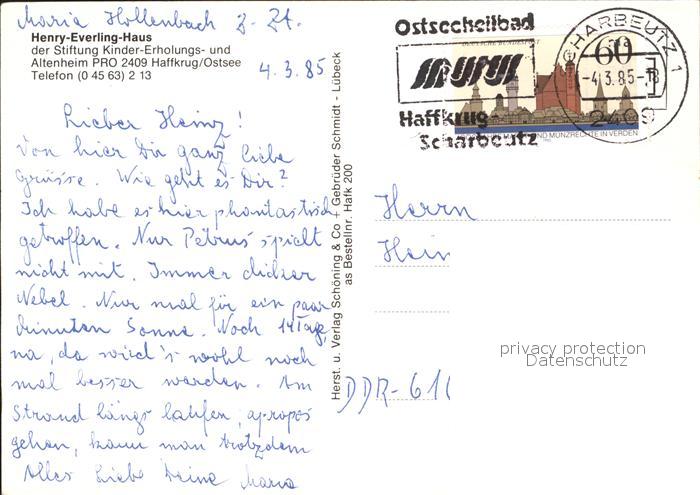 Maria Hollenbach Z. 21.
Henry-Everling-Haus
der Stiftung Kinder-Erholungs- und
Altenheim PRO 2409 Haffkrug/Ostsee
Telefon (0 45 63) 2 13
4.3.85
Lieber Heinz!
Von hier Dir ganz liebe
Grüsse. Wie geht es Dir?
Ich habe es hier phantastisch
getroffen. Nur Petrus spielt
nicht mit. Immer dicker
Nebel. Nur mal für ein paar
Minuten Sonne. Noch 14 Tage
na, da wird's wohl noch
mal besser werden. Am
Strand längs laufen, apropos
gehen, kann man trotzdem
Alles Liebe Deine Maria
Herst. u. Verlag Schöning & Co + Gebrüder Schmidt - Lübeck
as Bestellnr. Hafk 200
Ostseeheilbad
Haffkrug-
Scharbeutz
SCHARBEUTZ 1
-4.3.85-18
2409
60
DEUTSCHE BUNDESPOST
MARKT- UND MÜNZRECHTE IN VERDEN
Herrn
Hein
DDR-
privacy protection
Datenschutz